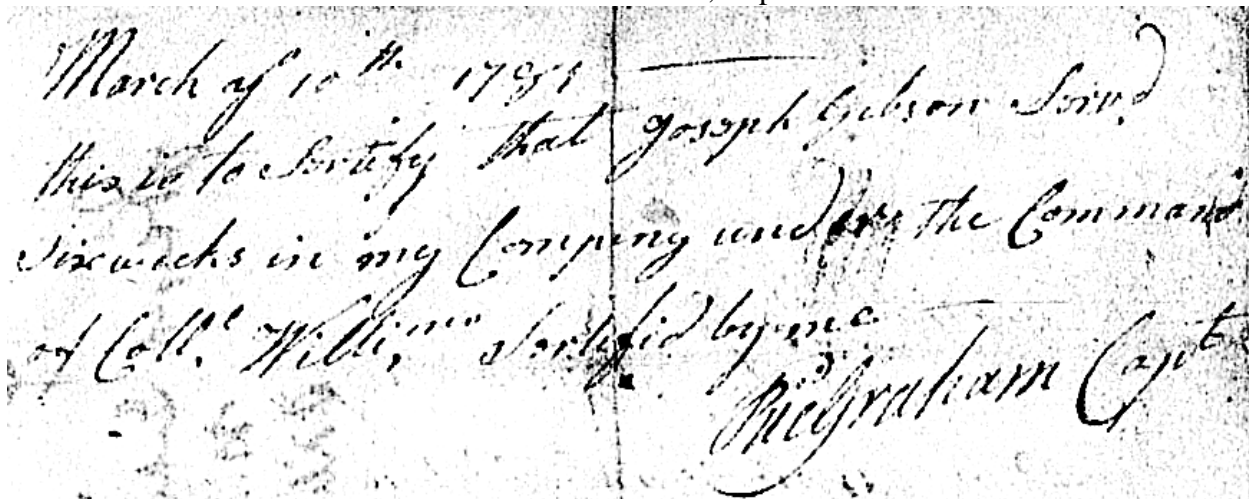 March ay 10th 1781
this is to Sertify that Joseph Gibson Servd
Sixweeks in my Compeny under the Command
of Coll. Willims Sertifid by me
Ricd Graham Capt